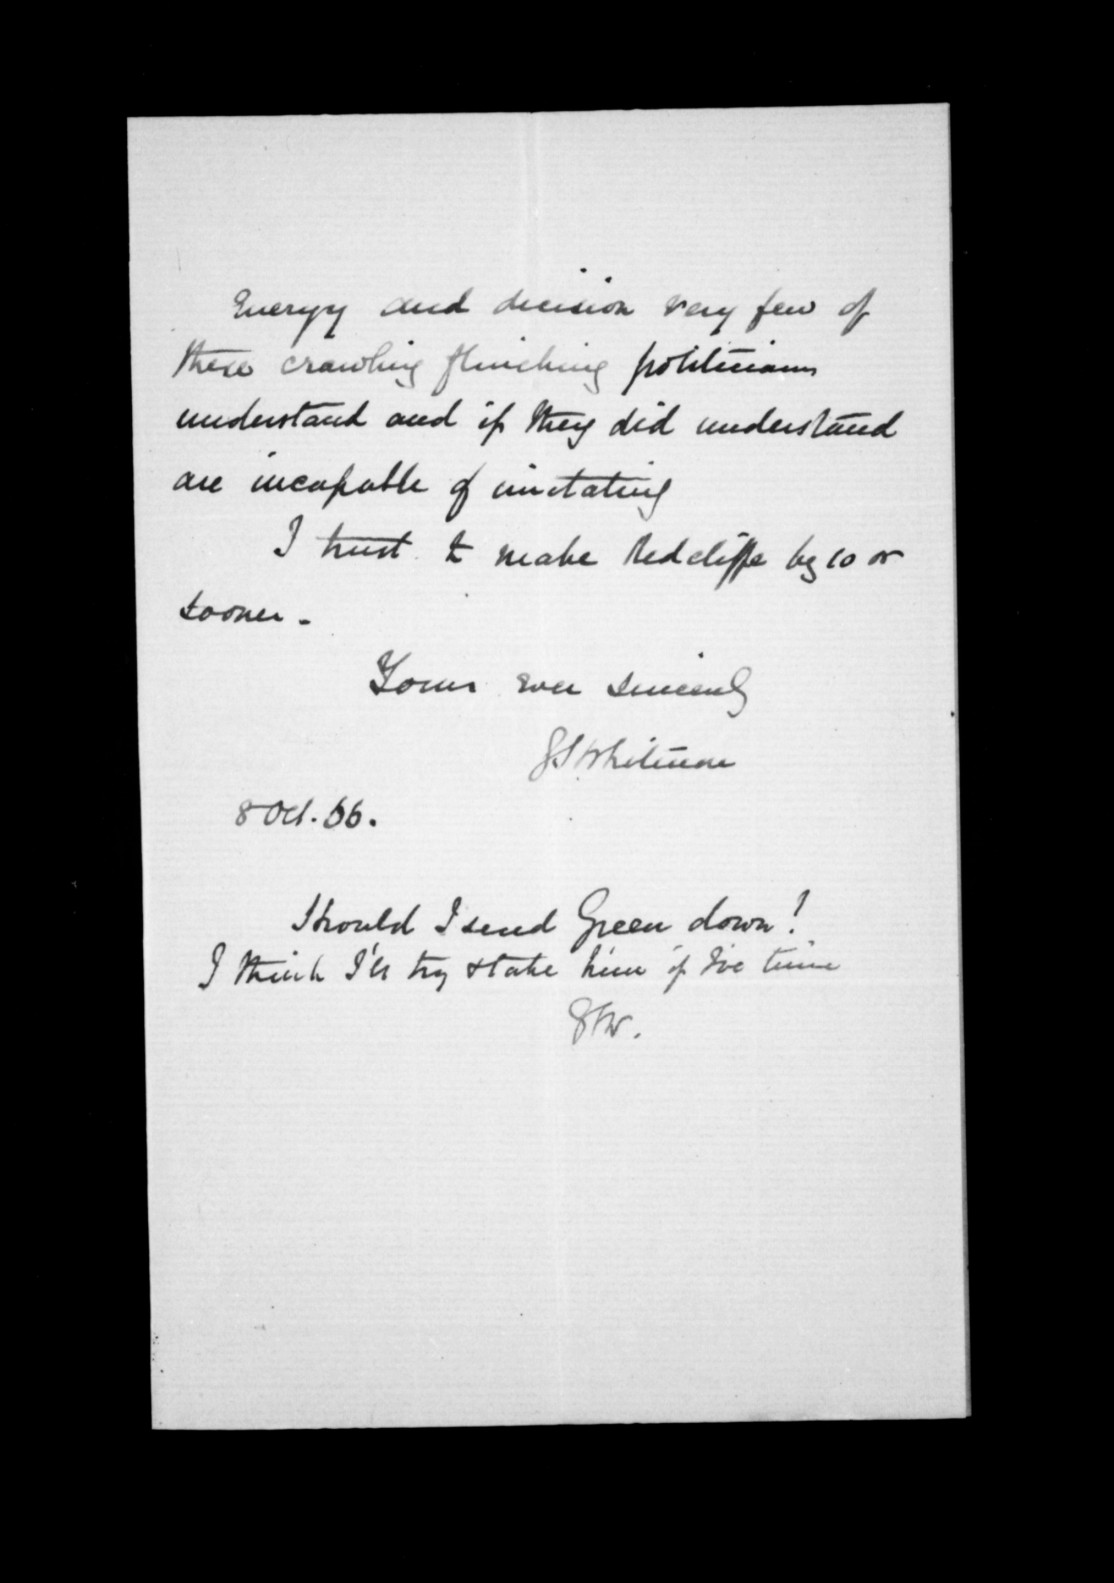 Energy and decision very few of
these crawling flinching politicians
understand and if they did understand
are incapable of imitating
I trust to make Redcliffe by 10 or
sooner -
Yours ever sincerely
GSWhitmore
8 Oct. 66.
Should I send Green down!
I think I'll try & take him if I've time
GSW.